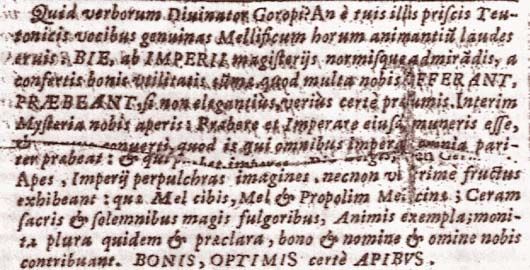 Quid verborum Divinator Goropi? An è tuis illis priscis Teu-
tonicis vocibus genuinas Mellificum horum animantiū laudes
eruis: BIE, ab IMPERII magisterijs normisque admirādis, a
confertis bonis utilitatis tùm, quod multa nobis OFFERANT,
PRÆBEANT, si non elegantiùs, veriùs certè promis. Interim
Mysteria nobis aperis: Præbere et Imperare eiusdē muneris esse,
& converti, quod is qui omnibus Imperat omnia pari-
ter præbeat: & qui
Apes, Imperij perpulchras imagines, necnon vitæ primè fructus
exhibeant: quæ Mel cibis, Mel & Propolim Medicinæ; Ceram
sacris & solemnibus magis fulgoribus, Animis exempla; moni-
ta plura quidem & præclara, bono & nomine & omine nobis
contribuant. BONIS, OPTIMIS certè APIBVS.